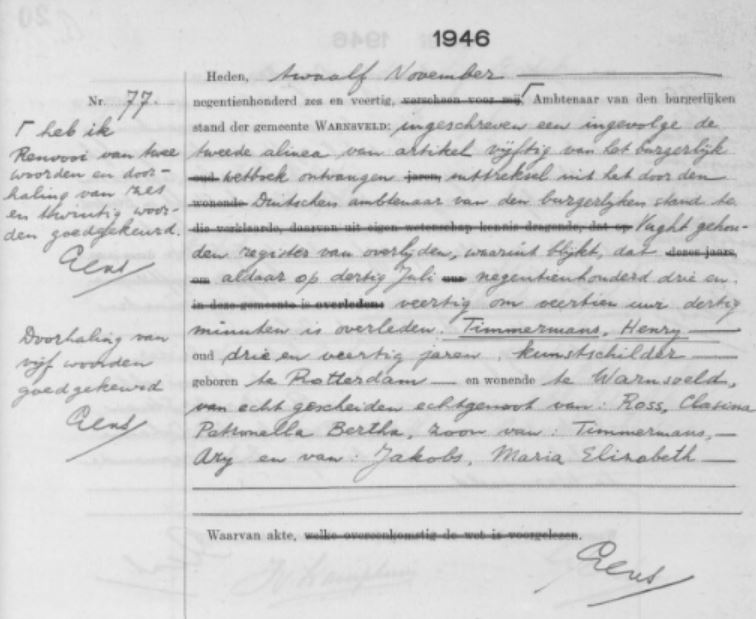 1946
Heden, twaalf November
Nr. 77.
negentienhonderd zes en veertig, verscheen voor mij, Ambtenaar van den burgerlijken
stand der gemeente WARNSVELD: ingeschreven een ingevolge de
tweede alinea van artikel vijftig van het burgerlijk
oud wetboek ontvangen jaren, uittreksel uit het door den
wonende Duitschen ambtenaar van den burgerlijken stand te
die verklaarde, daarvan uit eigen wetenschap kennis dragende, dat op Vught gehou-
den register van overlijden, waaruit blijkt, dat dezes jaars,
om aldaar op dertig Juli uur negentienhonderd drie en
in deze gemeente is overleden: veertig om veertien uur dertig
minuten is overleden. Timmermans, Henry
oud drie en veertig jaren, kunstschilder
geboren te Rotterdam en wonende te Warnsveld,
van echt gescheiden echtgenoot van: Ross, Clasina
Patronella Bertha, zoon van: Timmermans,
Ary en van: Jakobs, Maria Elizabeth
Waarvan akte, welke overeenkomstig de wet is voorgelezen.
heb ik
Renvooi van twee
woorden en door-
haling van zes
en twintig woor-
den goedgekeurd.
Doorhaling van
vijf woorden
goedgekeurd